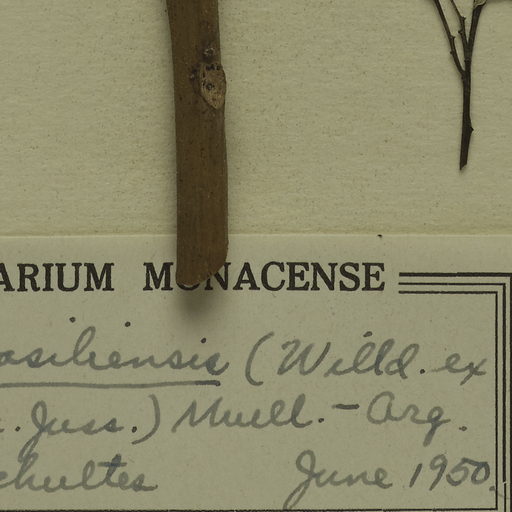 ARIUM MONACENSE
asiliensis (Willd. ex
. Juss.) Muell.-Arg.
chultes June 1950.